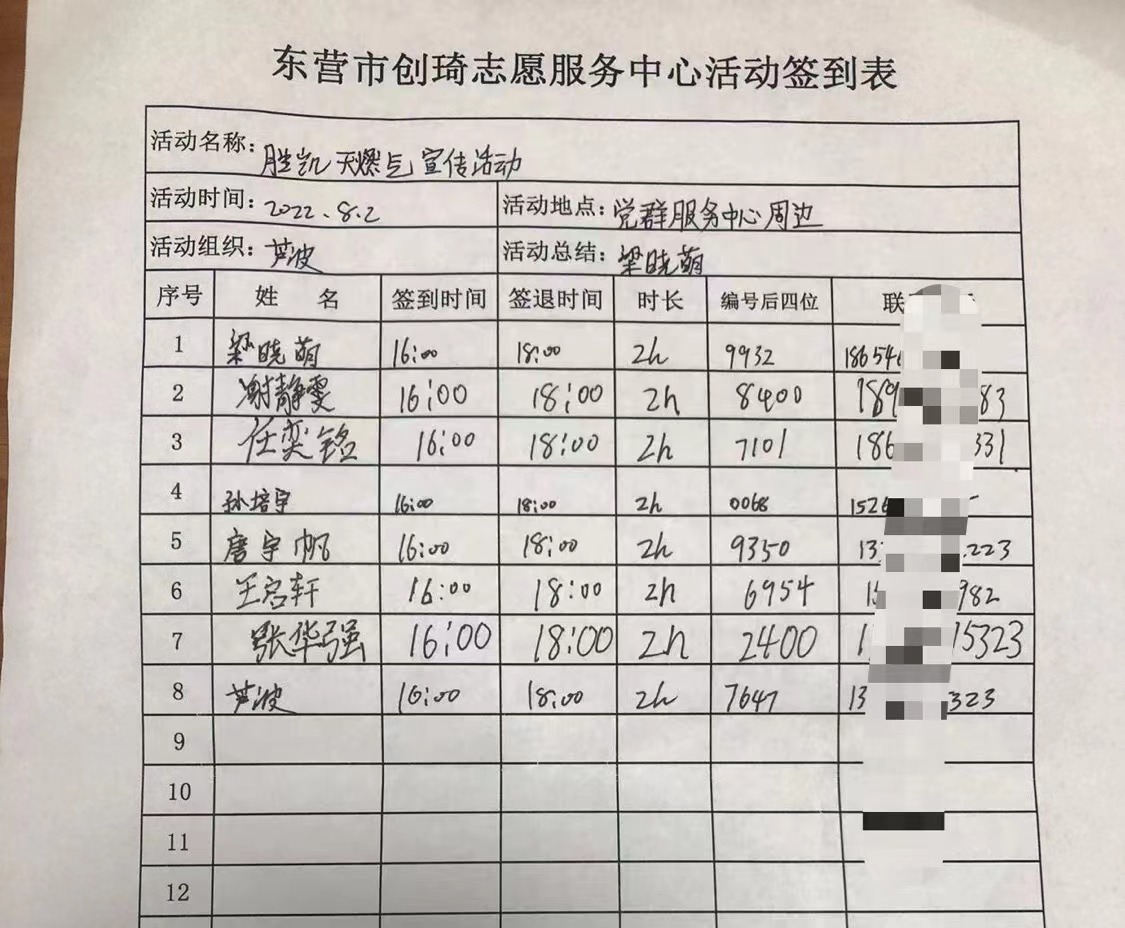 东营市创琦志愿服务中心活动签到表
活动名称：胜凯天燃气宣传活动
活动时间：2022.8.2 活动地点：党群服务中心周边
活动组织：芦波 活动总结：梁晓萌
序号 姓 名 签到时间 签退时间 时长 编号后四位 联
1 梁晓萌 16:00 18:00 2h 9932 18654
2 谢静雯 16:00 18:00 2h 8400 189 83
3 任奕铭 16:00 18:00 2h 7101 186 331
4 孙培宇 16:00 18:00 2h 0068 1526
5 唐宇帆 16:00 18:00 2h 9350 13 223
6 王启轩 16:00 18:00 2h 6954 13 982
7 张华强 16:00 18:00 2h 2400 1 15323
8 芦波 16:00 18:00 2h 7647 13 323
9
10
11
12